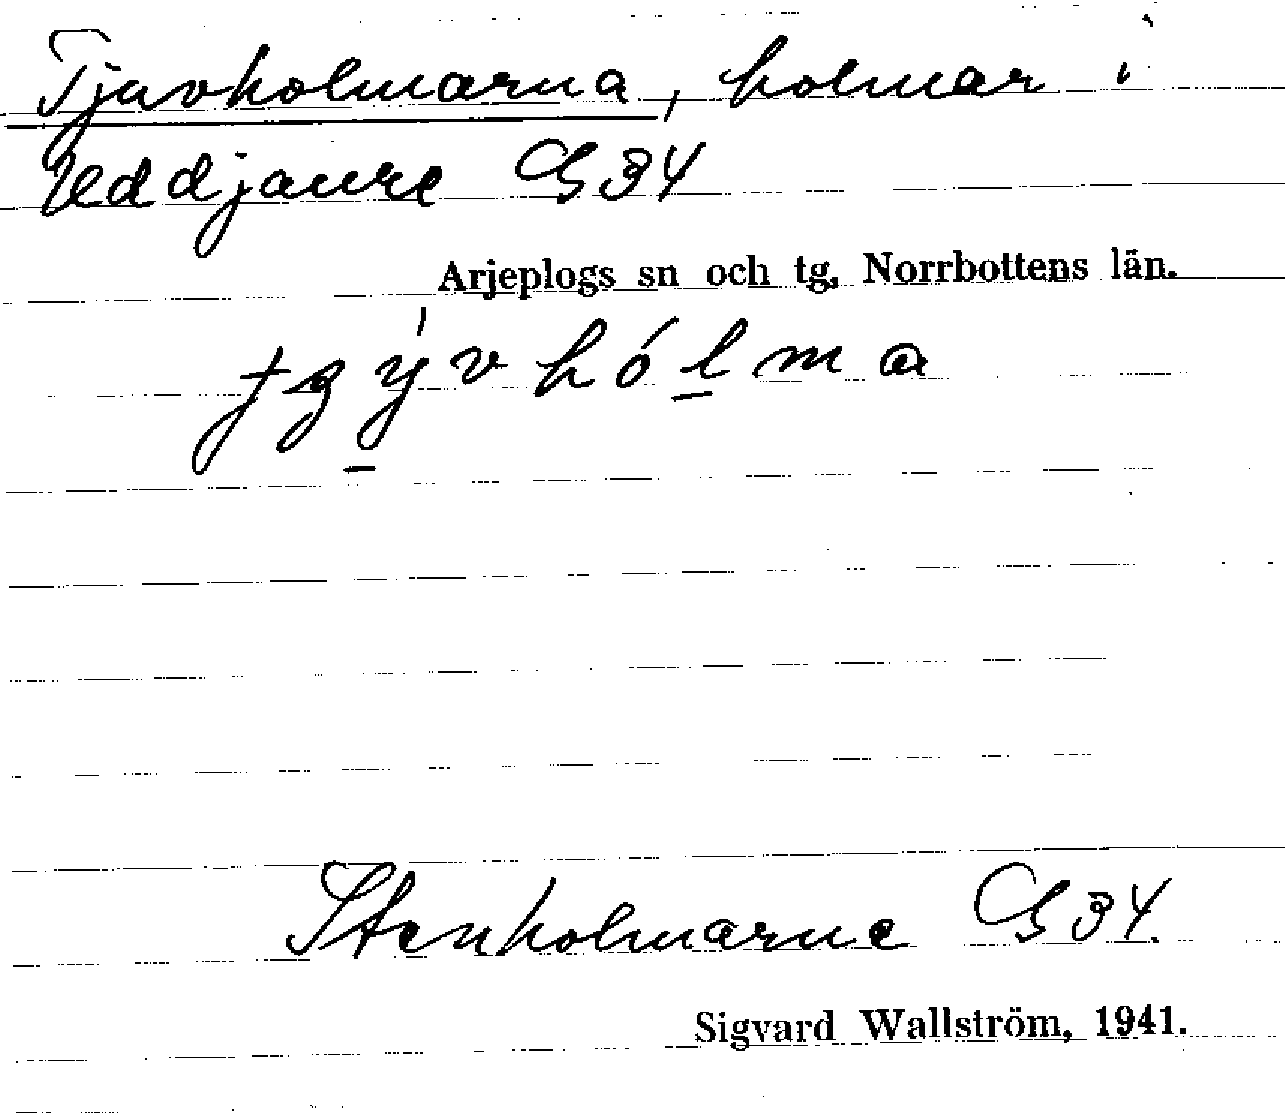 Tjavholmarna, holmar i
Uddjaure G34
Arjeplogs sn och tg, Norrbottens län.
Stenholmarne G34.
Sigvard Wallström, 1941.